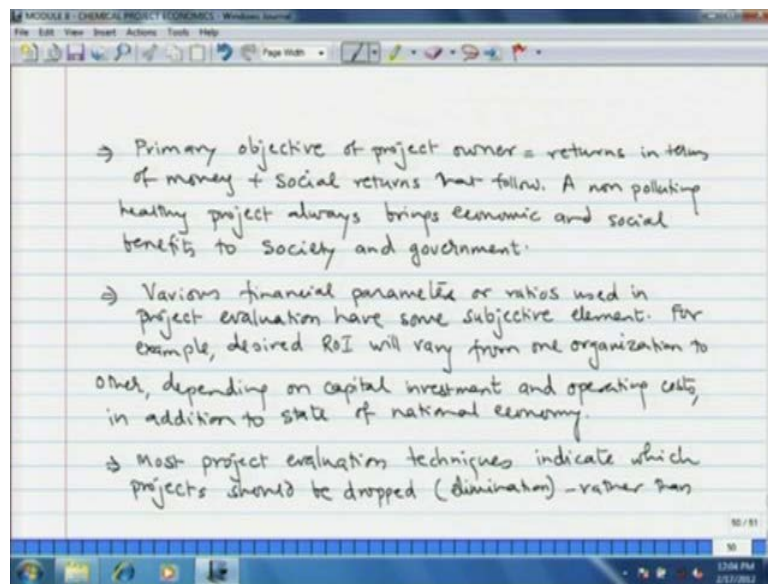 MODULE 8 - CHEMICAL PROJECT ECONOMICS - Windows Journal
File Edit View Insert Actions Tools Help
Page Width
⇒ Primary objective of project owner = returns in terms
of money + social returns that follow. A non polluting
healthy project always brings economic and social
benefits to society and government.
⇒ Various financial parameters or ratios used in
project evaluation have some subjective element. For
example, desired RoI will vary from one organization to
other, depending on capital investment and operating costs,
in addition to state of national economy.
⇒ Most project evaluation techniques indicate which
projects should be dropped (elimination) - rather than
50 / 51
50
12:04 PM
2/17/2012